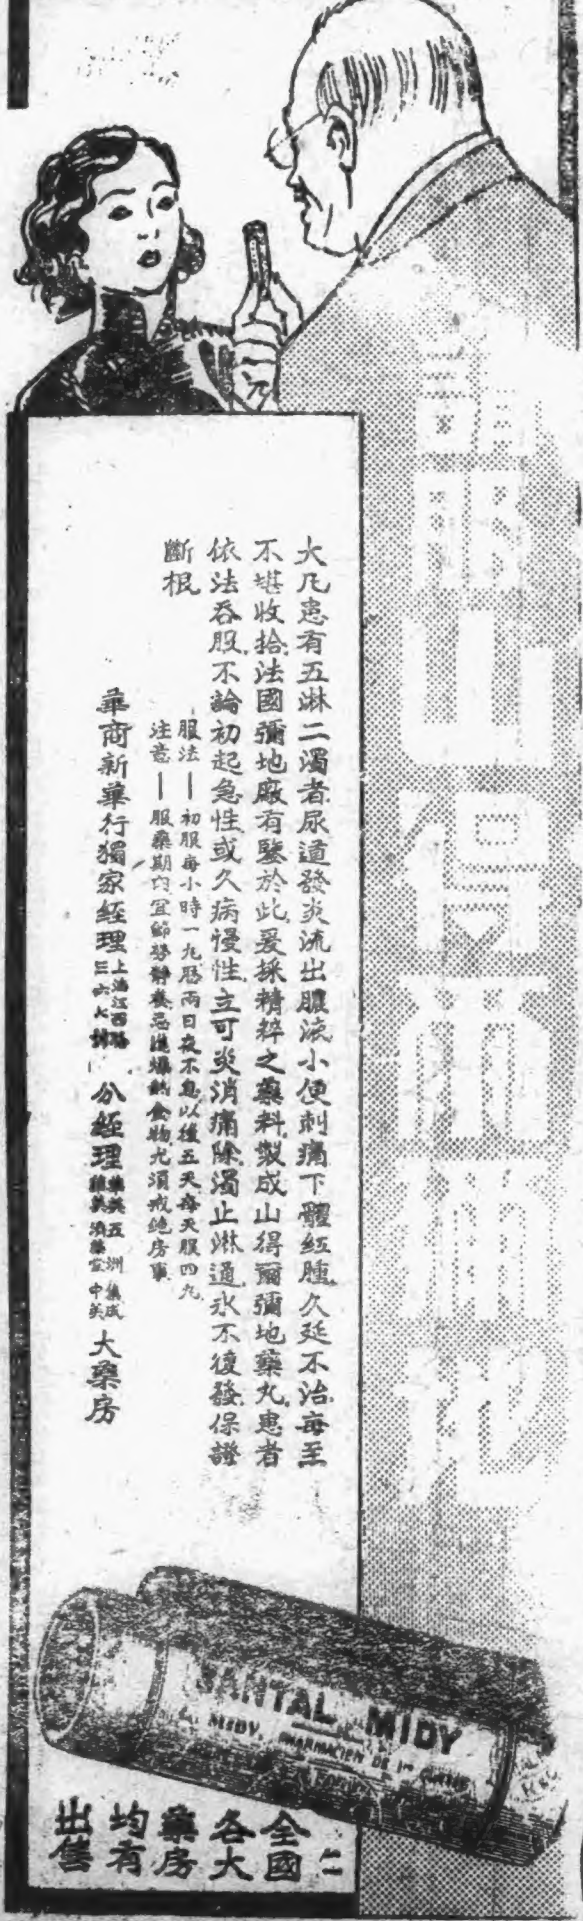 請服山得爾彌地
大凡患有五淋二濁者尿道發炎流出膿液小便刺痛下體紅腫久延不治每至
不堪收拾法國彌地廠有鑒於此爰採精粹之藥料製成山得爾彌地藥丸患者
依法吞服不論初起急性或久病慢性立可炎消痛除濁止淋通永不復發保證
斷根
服法——初服每小時一丸歷兩日夜不息以後五天每天服四丸
注意——服藥期內宜節勞靜養忌進燥熱食物尤須戒絕房事
華商新華行獨家經理 上海江西路 三六六號
分經理 五洲 集成 中英 大藥房
SANTAL MIDY
L. MIDY, PHARMACIEN DE 1re CLASSE
全國
各大
藥房
均有
出售